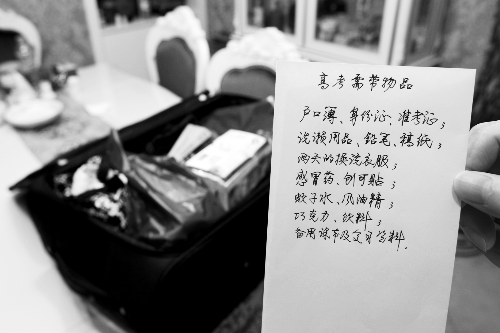 高考需带物品
户口簿、身份证、准考证；
洗漱用品、铅笔、稿纸；
两天的换洗衣服；
感冒药、创可贴；
蚊子水、风油精；
巧克力、饮料；
备用课本及复习资料.